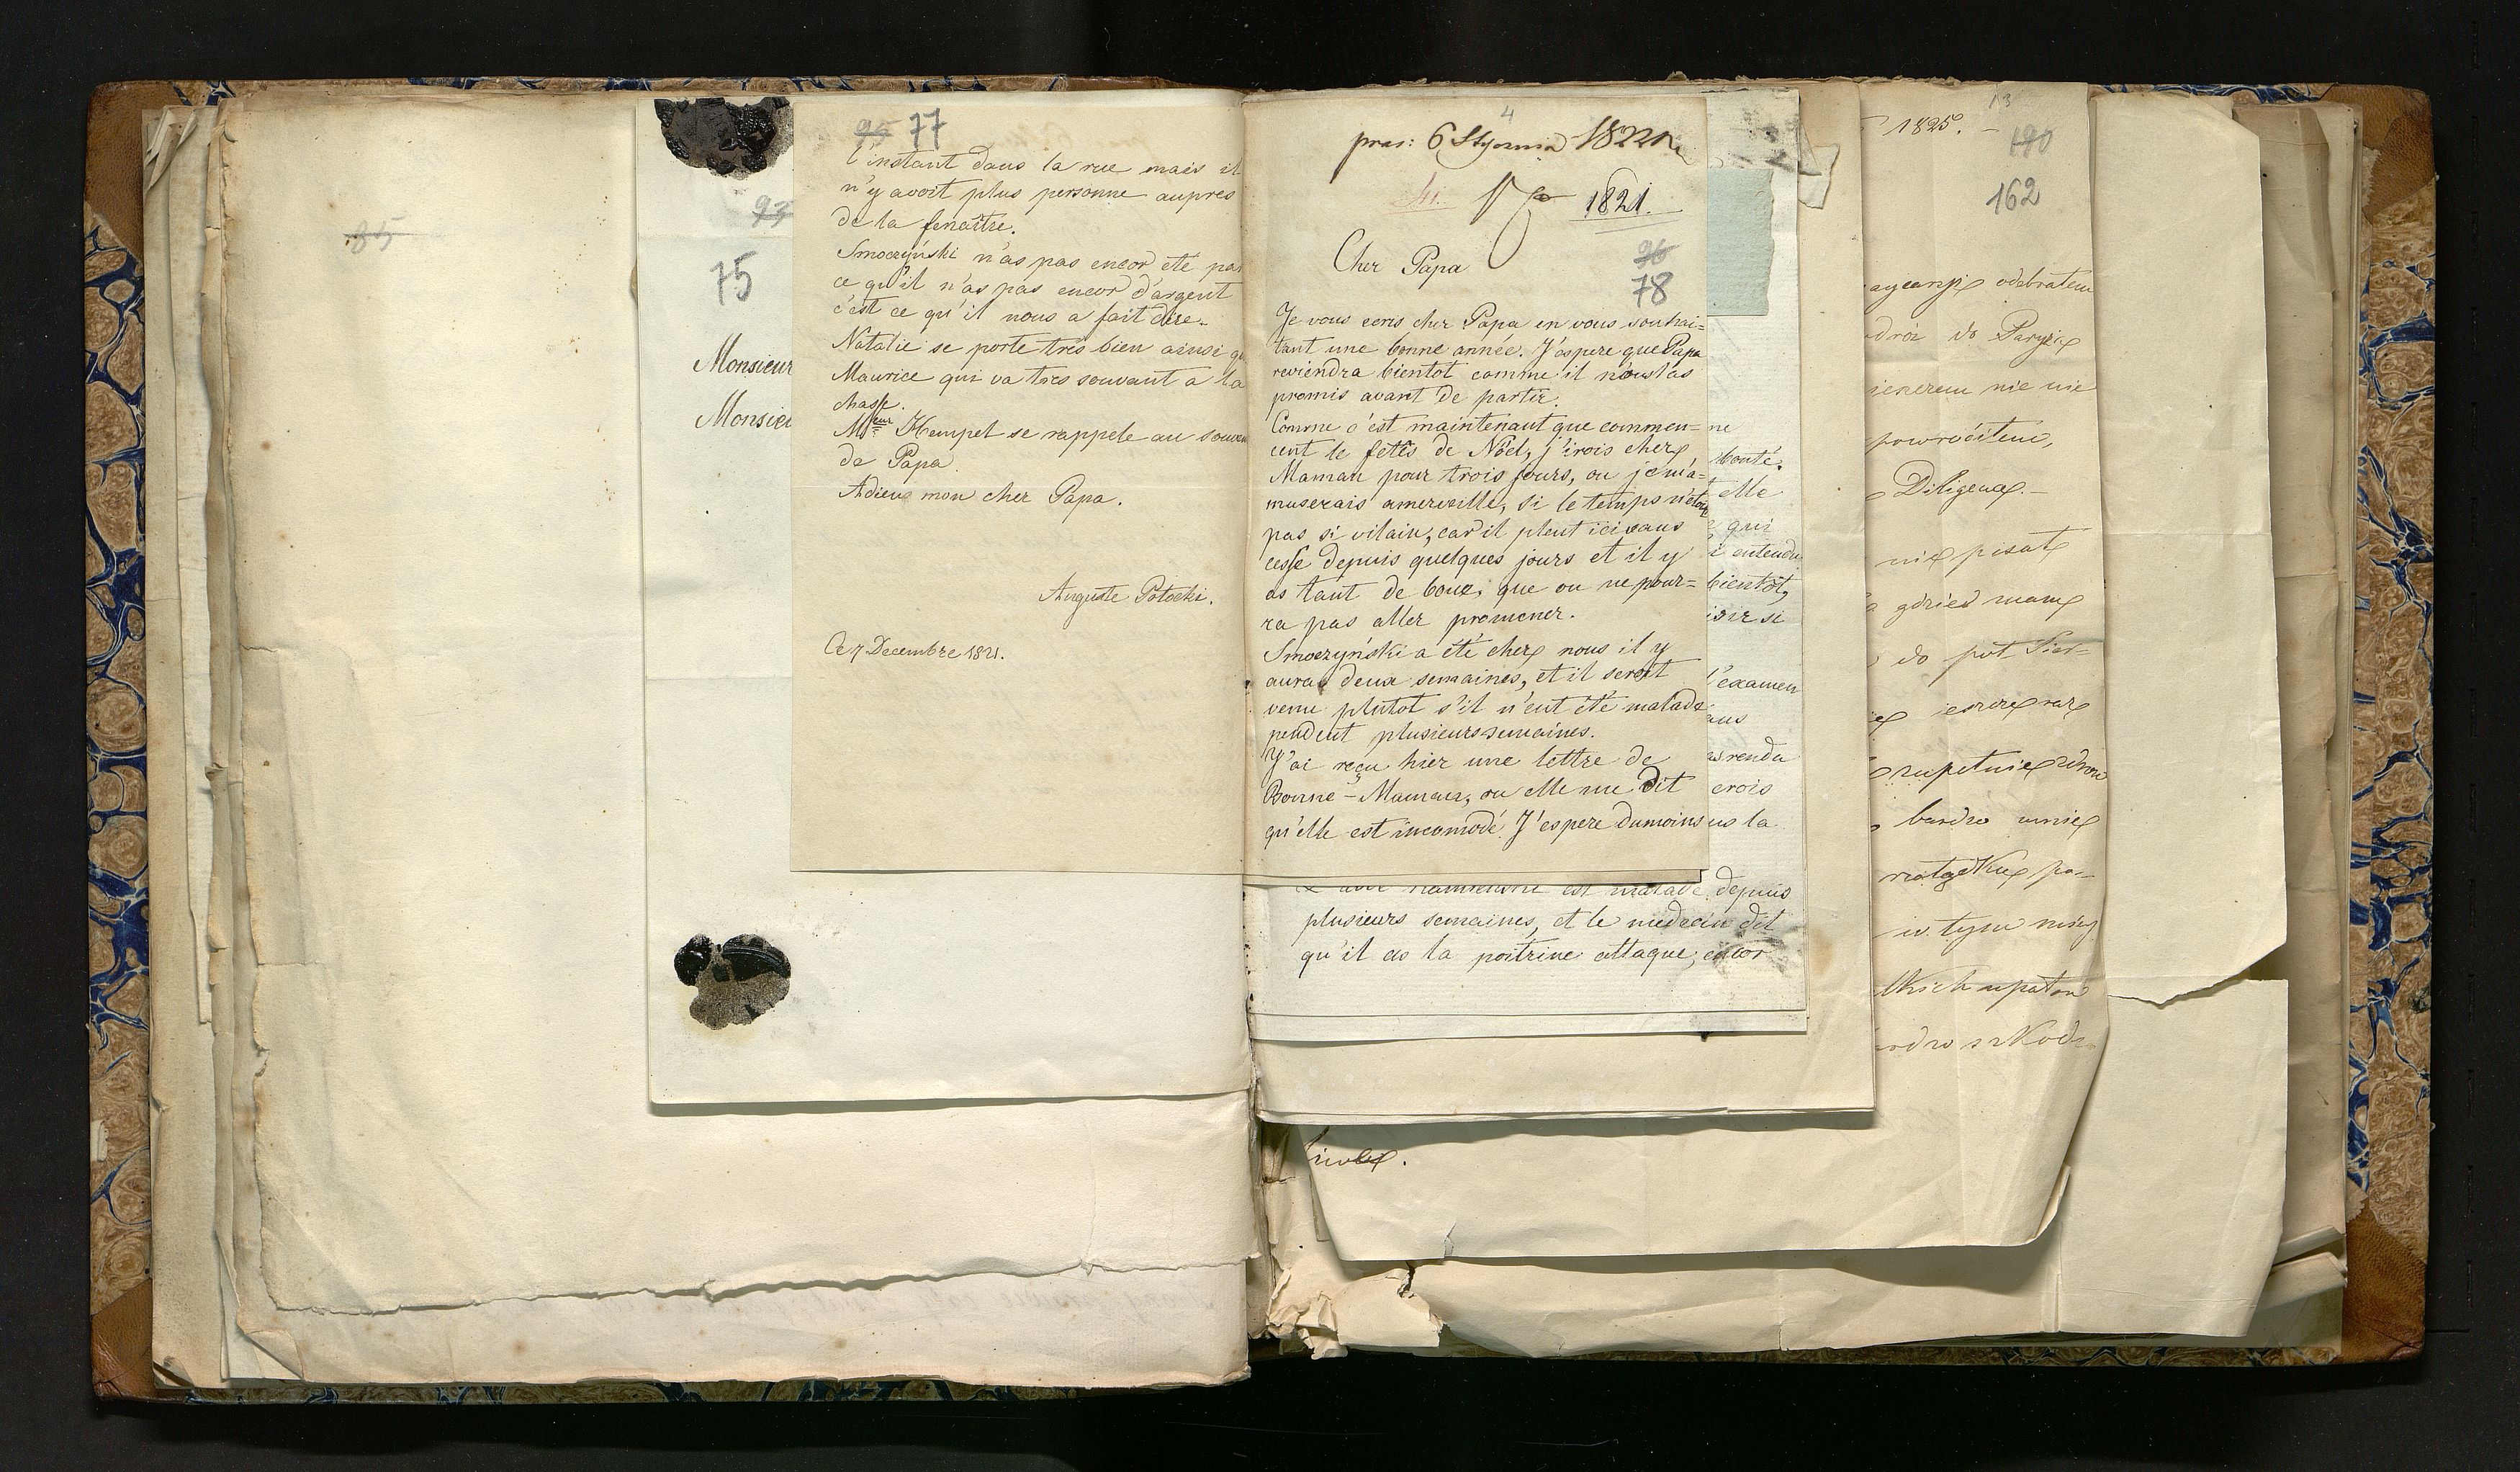 85
93
75
Monsieur
Monsieu
95 77
l'instant dans la rue mais il
n'y avoit plus personne aupres
de la fenaître.
Smoczyński n'as pas encor eté par
ce qu'il n'as pas encor d'argent
c'est ce qu'il nous a fait dire.
Natalie se porte très bien ainsi q
Maurice qui va très souvant a la
chasse.
Hempel se rappele au souven
de Papa.
Adieu mon cher Papa.
Auguste Potocki.
Ce 7 Decembre 1821.
4
pras: 6 Stycznia 1822
1821.
96
78
Cher Papa
Je vous ecris cher Papa en vous souhai=
tant une bonne année. J'espere que Papa
reviendra bientot comme il nous l'as
promis avant de partir.
Comme c'est maintenant que commen=
cent le fetês de Nöel, j'irois chez
Maman pour trois jours, ou je m'a=
muserais amerveille, si le temps n'etoit
pas si vilain, car il pleut ici sans
cesse depuis quelques jours et il y
as tant de boue, que on ne pour=
ra pas aller promener.
Smoczyński a été chez nous il y
aura deux semaines, et il seroit
venu plutot s'il n'eut été malade
pendent plusieurs semaines.
J'ai reçu hier une lettre de
Bonne-Maman, ou elle me dit
qu'elle est incomodé. J'espere dumoins
ne
bonté.
elle
qui
entendu
bientôt,
isir si
l'examen
ans
as rendu
erois
us la
est malade, depuis
plusieurs semaines, et le medecin dit
qu'il as la poitrine attaque, encor
1825. –
13
190
162
odebrałem
do Paryża
nie nie
powróciłem,
Diligence. –
nie pisał
gdzieś mam
do
zupełnie zdrow
bardzo mnie
pa-
w tym